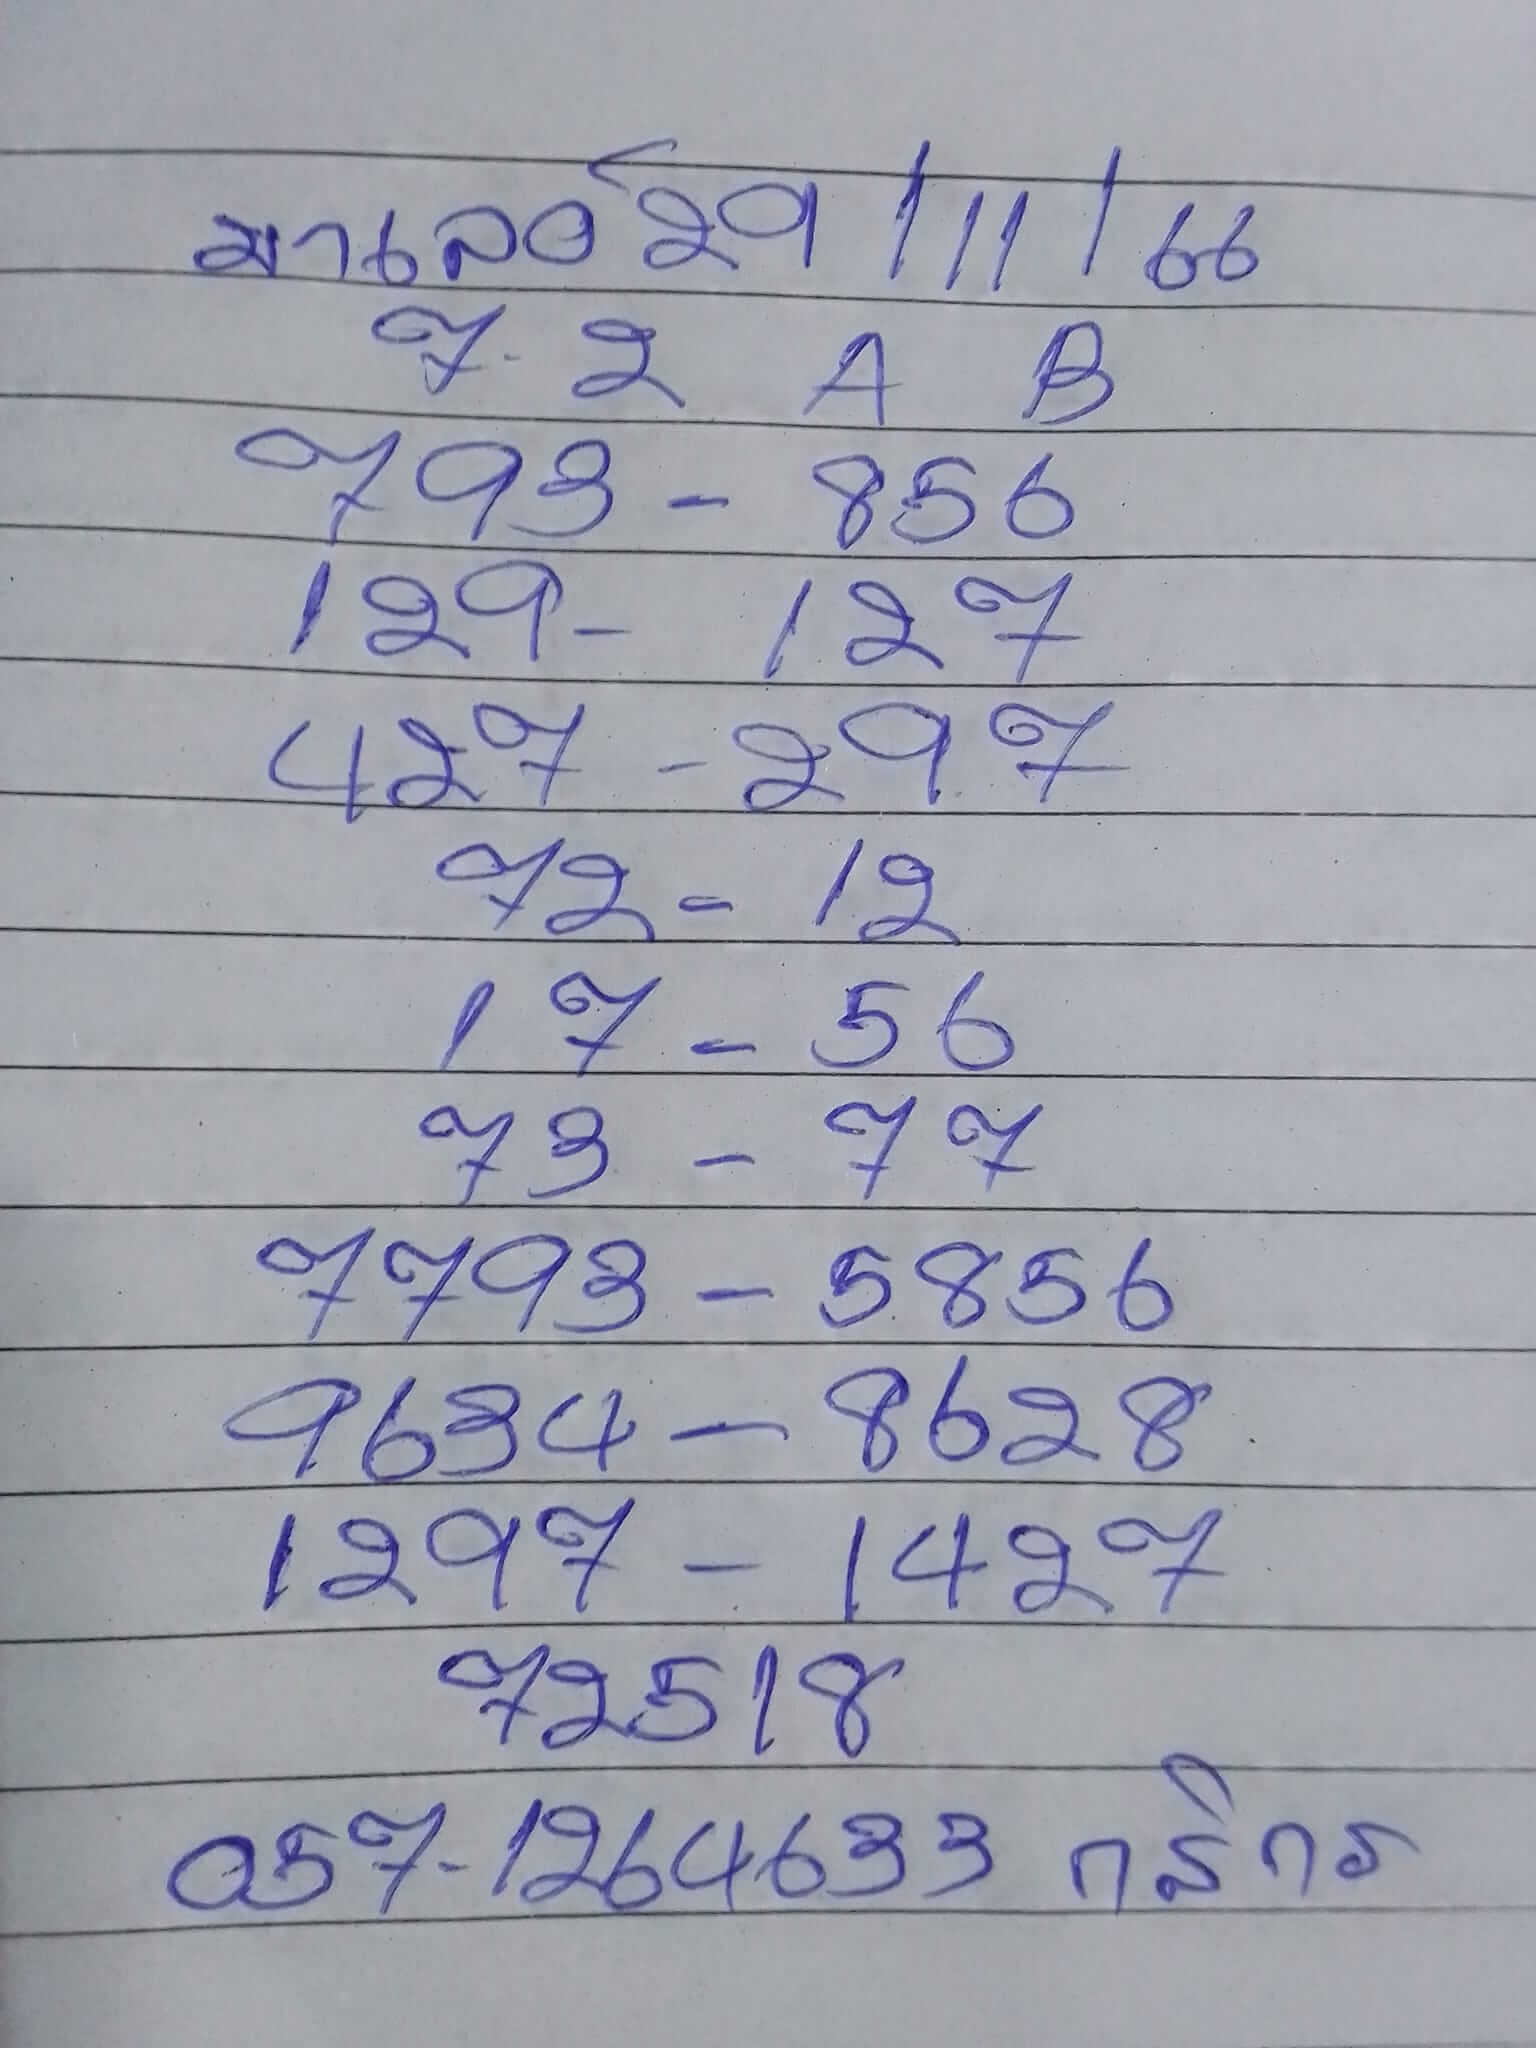 มาเลย์ 29/11/66
7-2 A B
793 - 856
129 - 127
427 - 297
72 - 12
17 - 56
73 - 77
7793 - 5856
9634 - 8628
1297 - 1427
72518
057-1264633 กสิกร